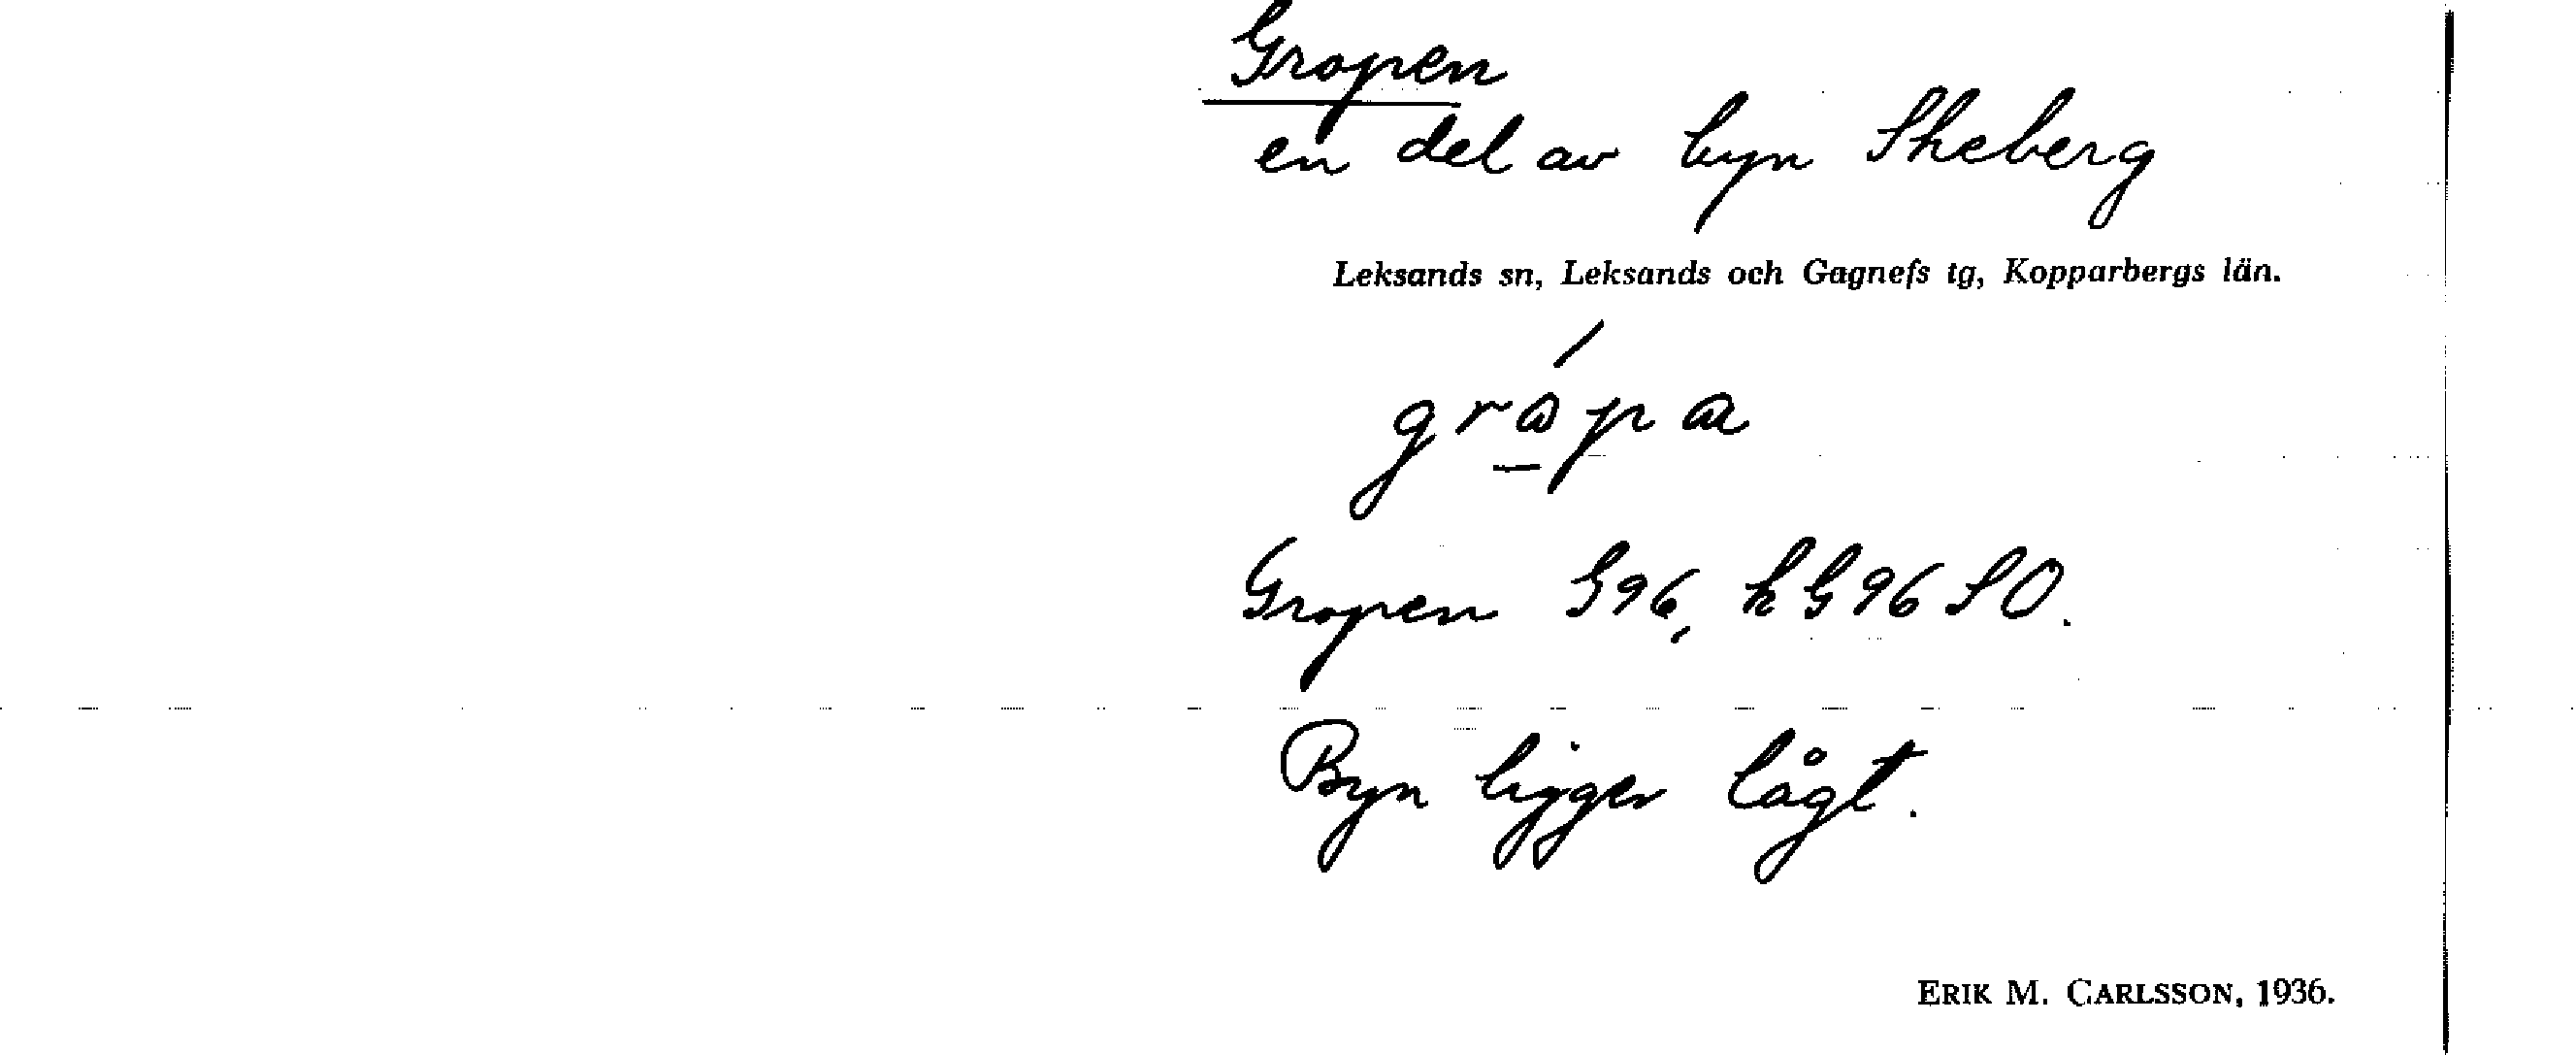 Gropen
en del av byn Skeberg
Leksands sn, Leksands och Gagnefs tg, Kopparbergs län.
Gropen G96, kG96SO.
Byn ligger lågt.
ERIK M. CARLSSON, 1936.